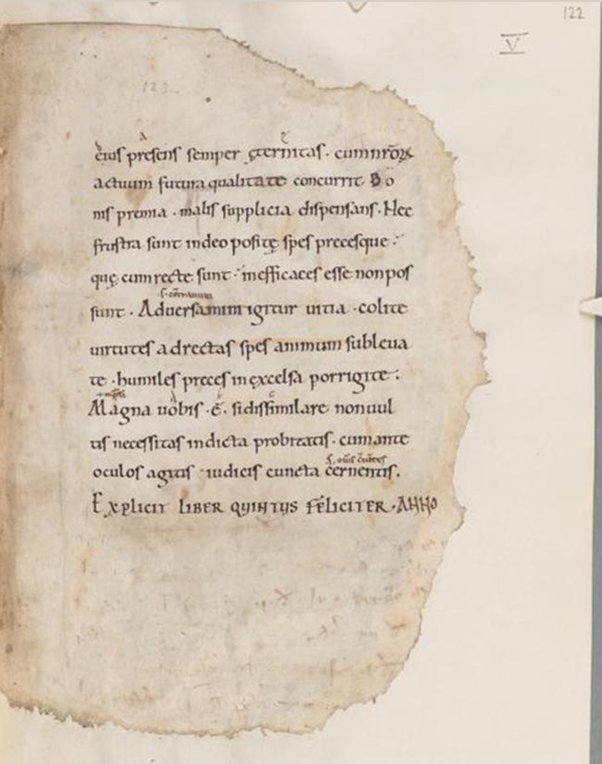 122
V
122
eius presens semper ęternitas · cum nr̄oꝝ
actuum futura qualitate concurrit Bo
nis premia · malis supplicia dispensans · Nec
frustra sunt in deo positę spes precesque ·
quę cum recte sunt · inefficaces esse non pos
sunt · Aduersamini igitur uitia · colite
uirtutes ad rectas spes animum subleua
te · humiles preces in excelsa porrigite ·
Magna uobis · ē · si dissimilare non uul
tis necessitas indicta probitatis · cum ante
oculos agitis iudicis cuncta cernentis ·
Explicit LIBER QUINTUS FELICITER · ANNO